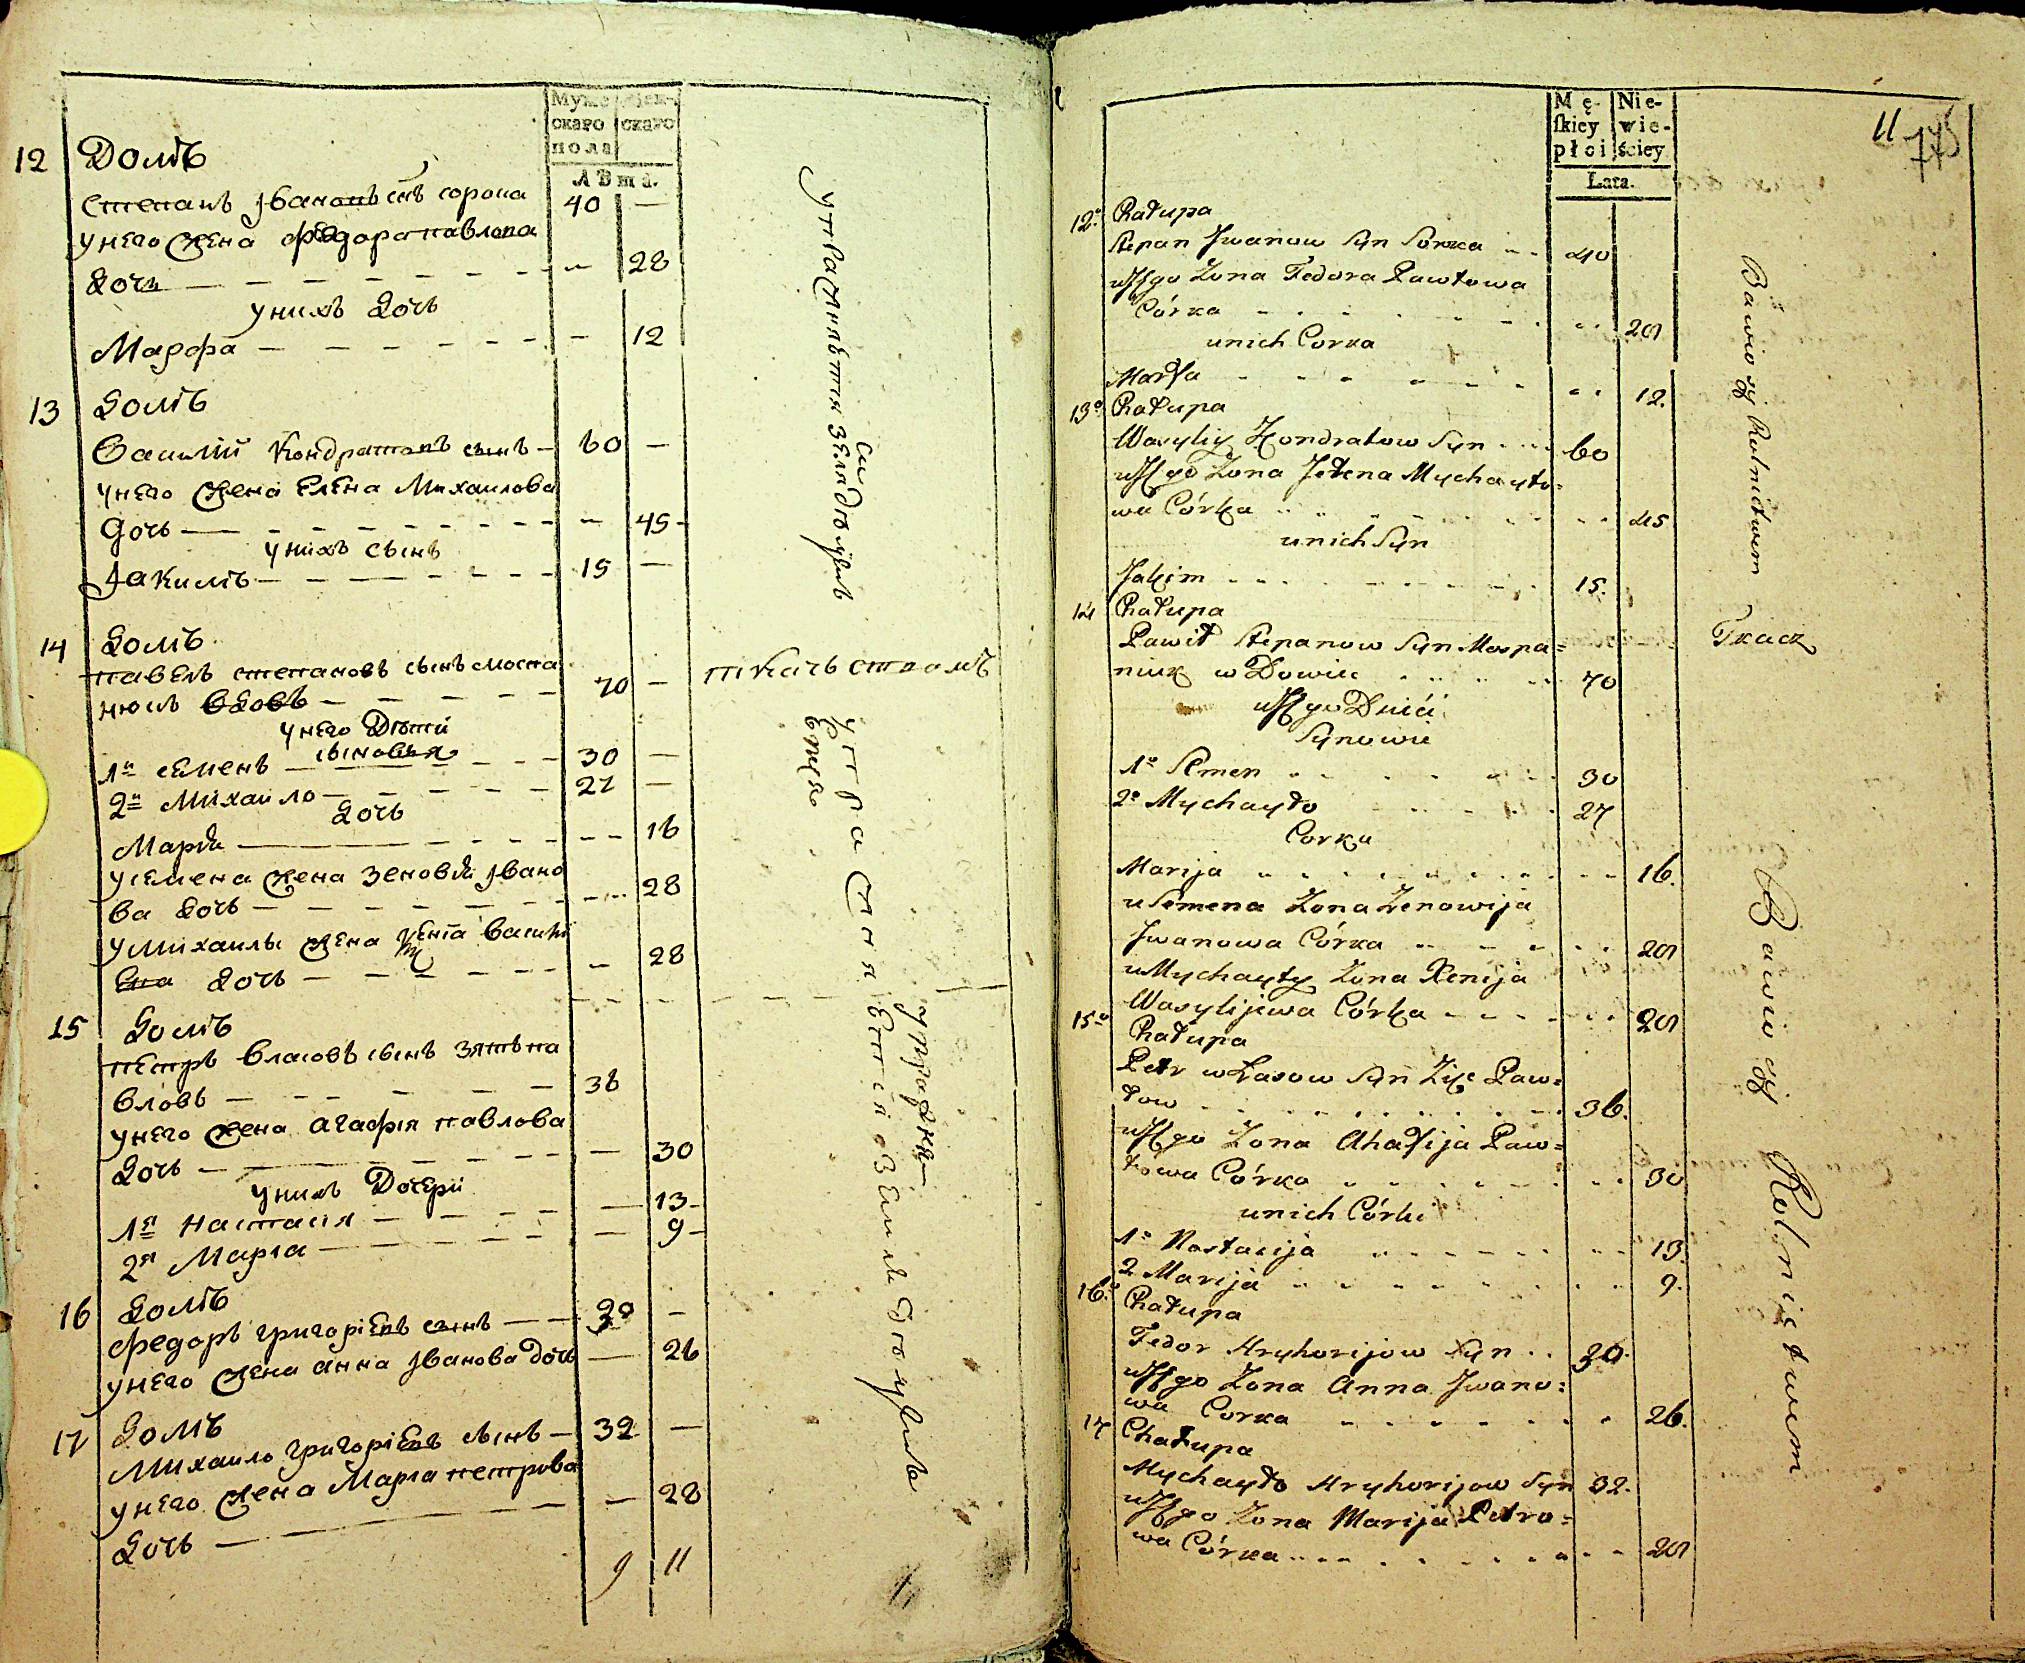 Муже-
скаго
пола
женскаго
Лѣта.
12 Домъ
степанъ Ивановъ сынъ сорока
40 —
у него жена федора павлова
дочь — 28
у нихъ дочь
Марфа — 12
13 домъ
василий Кондратовъ сынъ — 60 —
у него жена Елена Михаилова
дочь — 45
у нихъ сынъ
Иакимъ — 15 —
14 домъ
павелъ степановъ сынъ моспа
нюкъ вдовъ — 70 —
у него дѣти
сыновья
1й семенъ — 30 —
2й михаило — 27 —
дочь
Мария — 16
у семена жена зеновия Ивано
ва дочь — 28
у михаилы жена ксения василі
ева дочь — 28
15 домъ
петръ власовъ сынъ зять па
вловъ — 36
у него жена агафия павлова
дочь — 30
у нихъ дочери
1я настасия — 13
2я Мариа — 9
16 домъ
федоръ григориевъ сынъ — 30 —
у него жена анна Иванова дочь — 26
17 домъ
михаило григориевъ сынъ — 32 —
у него жена Мариа петрова
дочь — 28
9 11
ткачьствомъ
Mę-
skiey
płci
Nie-
wie-
ściey
Lata.
11
12º Chałupa
Stepan Jwanow Syn Soroka 40
u Jego Żona Fedora Pawłowa
Córka 28
u nich Corka
Marfa 12.
13º Chałupa
Wasyliy Kondratow Syn 60
u Jego Żona Jełena Mychayło=
wa Córka 45
u nich Syn
Jakim 15.
14 Chałupa
Pawił Stepanow Syn Mospa=
niuk wDowiec 70
u Jego Dzieci
Synowie
1º Semen 30
2º Mychayło 27
Corka
Marija 16.
u Semena Żona Zenowija
Jwanowa Córka 28
u Mychayły Żona Xenija
Wasylijewa Córka 28
15º Chałupa
Petr wŁasow Syn Zięć Paw=
łow 36.
u Jego Żona Ahafija Paw=
łowa Córka 30
u nich Córki
1º Nastasija 13.
2 Marija 9.
16º Chałupa
Fedor Hryhorijow Syn 30.
u Jego Żona Anna Jwano=
wa Corka 26.
17 Chałupa
Mychayło Hryhorijow Syn 32.
u Jego Żona Marija Petro=
wa Córka 28
Bawią się Rolnictwem
Tkacz
Bawią się Rolnictwem